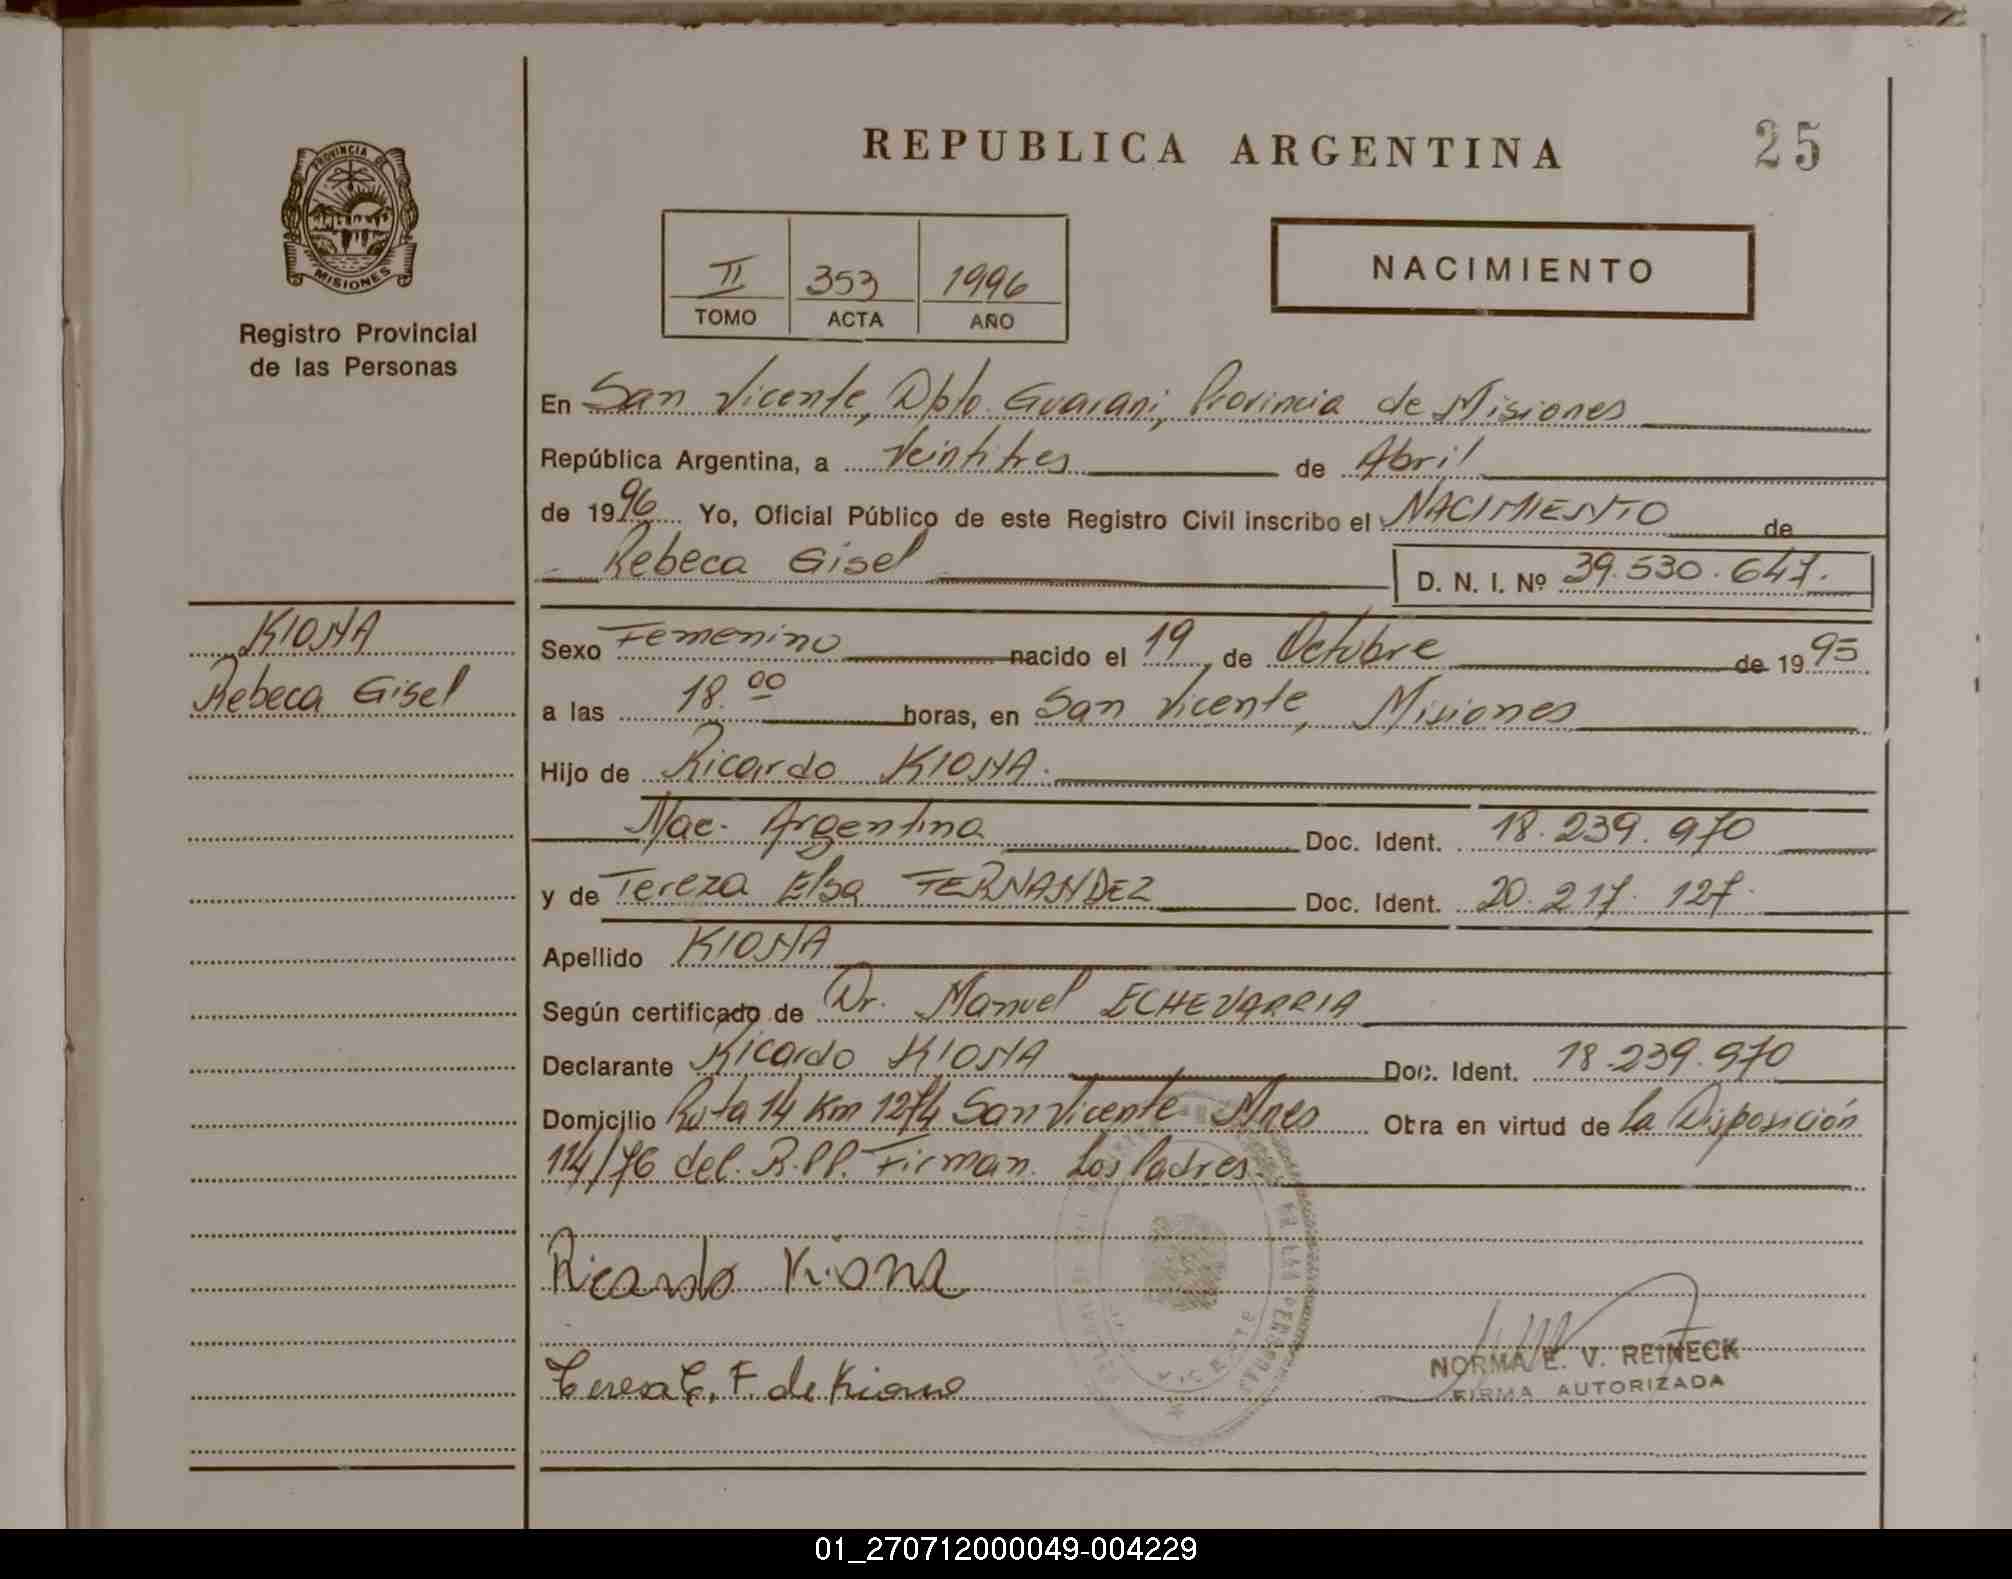 PROVINCIA DE
MISIONES
Registro Provincial
de las Personas
KIONA
Rebeca Gisel
REPUBLICA ARGENTINA
25
II 353 1996
TOMO ACTA AÑO
NACIMIENTO
En San Vicente, Dpto. Guarani, Provincia de Misiones
República Argentina, a Veintitres de Abril
de 1996 Yo, Oficial Público de este Registro Civil inscribo el NACIMIENTO de
Rebeca Gisel D. N. I. Nº 39.530.647.
Sexo Femenino nacido el 19 de Octubre de 1995
a las 18.00 horas, en San Vicente, Misiones
Hijo de Ricardo KIONA.
Nac. Argentina Doc. Ident. 18.239.970
y de Tereza Elsa FERNANDEZ Doc. Ident. 20.217.127.
Apellido KIONA
Según certificado de Dr. Manuel ECHEVARRIA
Declarante Ricardo KIONA Doc. Ident. 18.239.970
Domicilio Ruta 14 Km 1274 San Vicente Mnes Otra en virtud de la Disposición
114/76 del. R.P.P. Firman. Los Padres.
Ricardo Kiona
Teresa E. F. de Kiona
NORMA E. V. REINECK
FIRMA AUTORIZADA
01_270712000049-004229